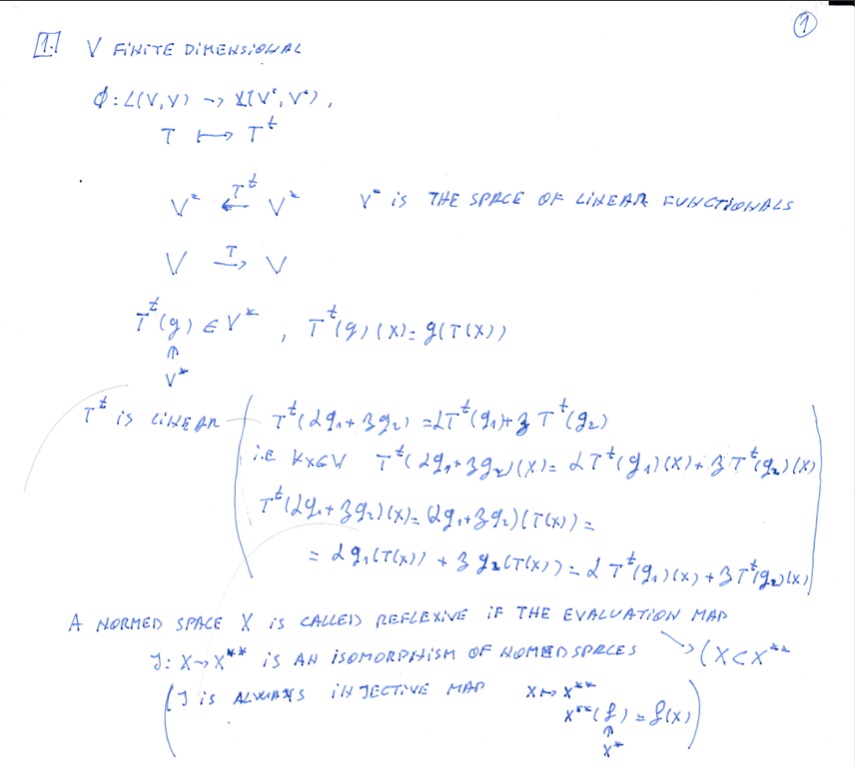 1
1. V FINITE DIMENSIONAL
ϕ: L(V,V) → L(V*, V*),
T ↦ Tᵗ
V* ←Tᵗ V* V* IS THE SPACE OF LINEAR FUNCTIONALS
V →T V
Tᵗ(g) ∈ V*, Tᵗ(g)(x) = g(T(x))
⇑
V*
Tᵗ IS LINEAR ( Tᵗ(αg₁ + βg₂) = αTᵗ(g₁) + βTᵗ(g₂)
i.e ∀x∈V Tᵗ(αg₁ + βg₂)(x) = αTᵗ(g₁)(x) + βTᵗ(g₂)(x)
Tᵗ(αg₁ + βg₂)(x) = (αg₁ + βg₂)(T(x)) =
= αg₁(T(x)) + βg₂(T(x)) = αTᵗ(g₁)(x) + βTᵗ(g₂)(x) )
A NORMED SPACE X IS CALLED REFLEXIVE IF THE EVALUATION MAP
J: X → X** IS AN ISOMORPHISM OF NOMED SPACES → (X ⊂ X**
(J IS ALWAYS INJECTIVE MAP X ↦ X**
X**(f) = f(x))
⇑
X*